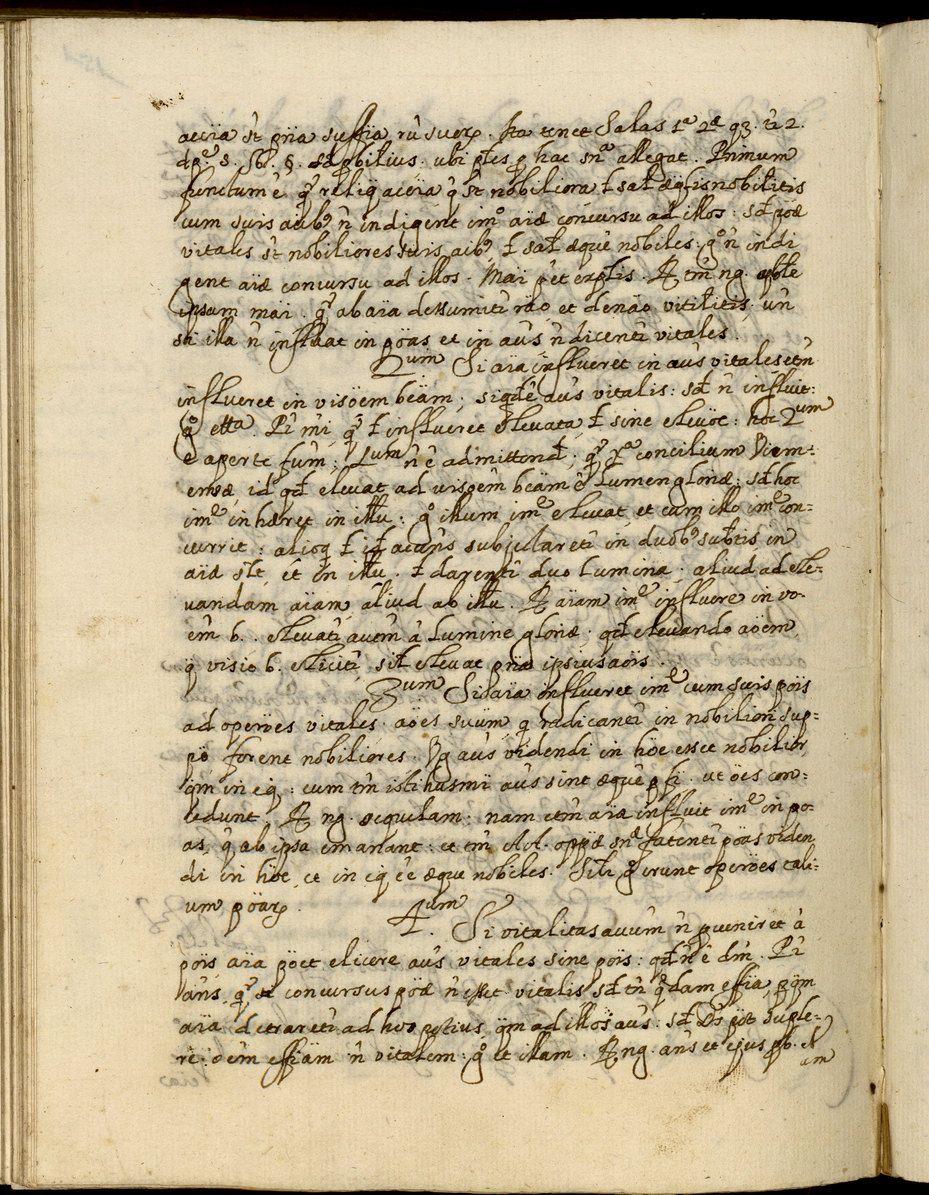 accña st pña suffña rũ suerꝝ. Ita tenet Salas 1ª 2æ q3. tr̃ 2.
dpᵉ 5. §. sd ꝓbilius. ubi ptes ꝑ hac snª allegat. Primum
functum ẽ qͬ reliq̃ accña q̃ st nobiliora ł sał æq̃lis nobilitis
cum suis actibꝰ ñ indigent imº aiæ concursu ad illos: sd poæ
vitales st nobiliores suis actibꝰ ł sał æque nobiles: gº ñ indi
gent aiæ concursu ad illos. Mai pꝫet explis. R tm̃ ng. absłe
ipsam mai. qͬ ab aia dessumitr̃ rão, et denão vitilitis. un̄
si illa ñ influat in põas et in acũs ñ dicentr̃ vitales.
2um Si aia influeret in acũs vitales etm̃
influeret in visõem beãm; siqd ẽ acũs vitalis: sd ñ influit:
gº etta. Pr̃ mi, qͬ ł influeret elevata ł sine elevõe: hoc 2um
ẽ aperte fum; 1um ñ ẽ admittend; qͬ iª concilium Viem-
ense, id qd elevat ad visoẽm beãm ẽ lumen gloriæ: sd hoc
imᵉ inhæret in illũ: gº illum imᵉ elevat, et cum illo imᵉ con-
currit: alioq̃ ł id accñs subjectaretr̃ in duobꝰ subtis in
aia slt, et in illũ. ł darentr̃ duo lumina; aliud ad ele-
vandam aiam, aliud ab illũ. R aiam imᵉ influere in vo-
em̃ b. elevatr̃ autem à lumine gloriæ: qd elevando aõem,
q̃ visio b. elicitr̃, sił elevat pña ipsius aõis.
3um Si aia influeret imᵉ cum suis põis
ad operões vitales. aões suũm q̃ radicantr̃ in nobiliori sup-
põ forent nobiliores. Vg acũs videndi in hõe esset nobilior
q̃m in eq̃: cum tm̃ istihusmi acũs sint æque pfi. ut oẽs con-
cedunt. R ng. sequelam. nam etm̃ aiæ influit imᵉ in po-
as, q̃ ab ipsa emanant: et tm̃ AA. oppæ snæ fatentr̃ põas viden
di in hõe, et in eq̃ ẽe æque nobiles. Siłi gº erunt operões tali-
um põarꝝ.
4um. Si vitalitas acuũm ñ proveniret à
põis aia põet elicere acũs vitales sine põis: qd ñ ẽ dm̃. Pr̃
ans. qͬ st concursus põæ ñ esset vitalis sd tm̃ q̃dam effia, pq̃m
aia detraretr̃ ad hos potius q̃m ad illos acũs: sd Ds põt suple-
re oẽm effiam ñ vitalem: gº et illam. R ng. ans et ejus pb. Et
am